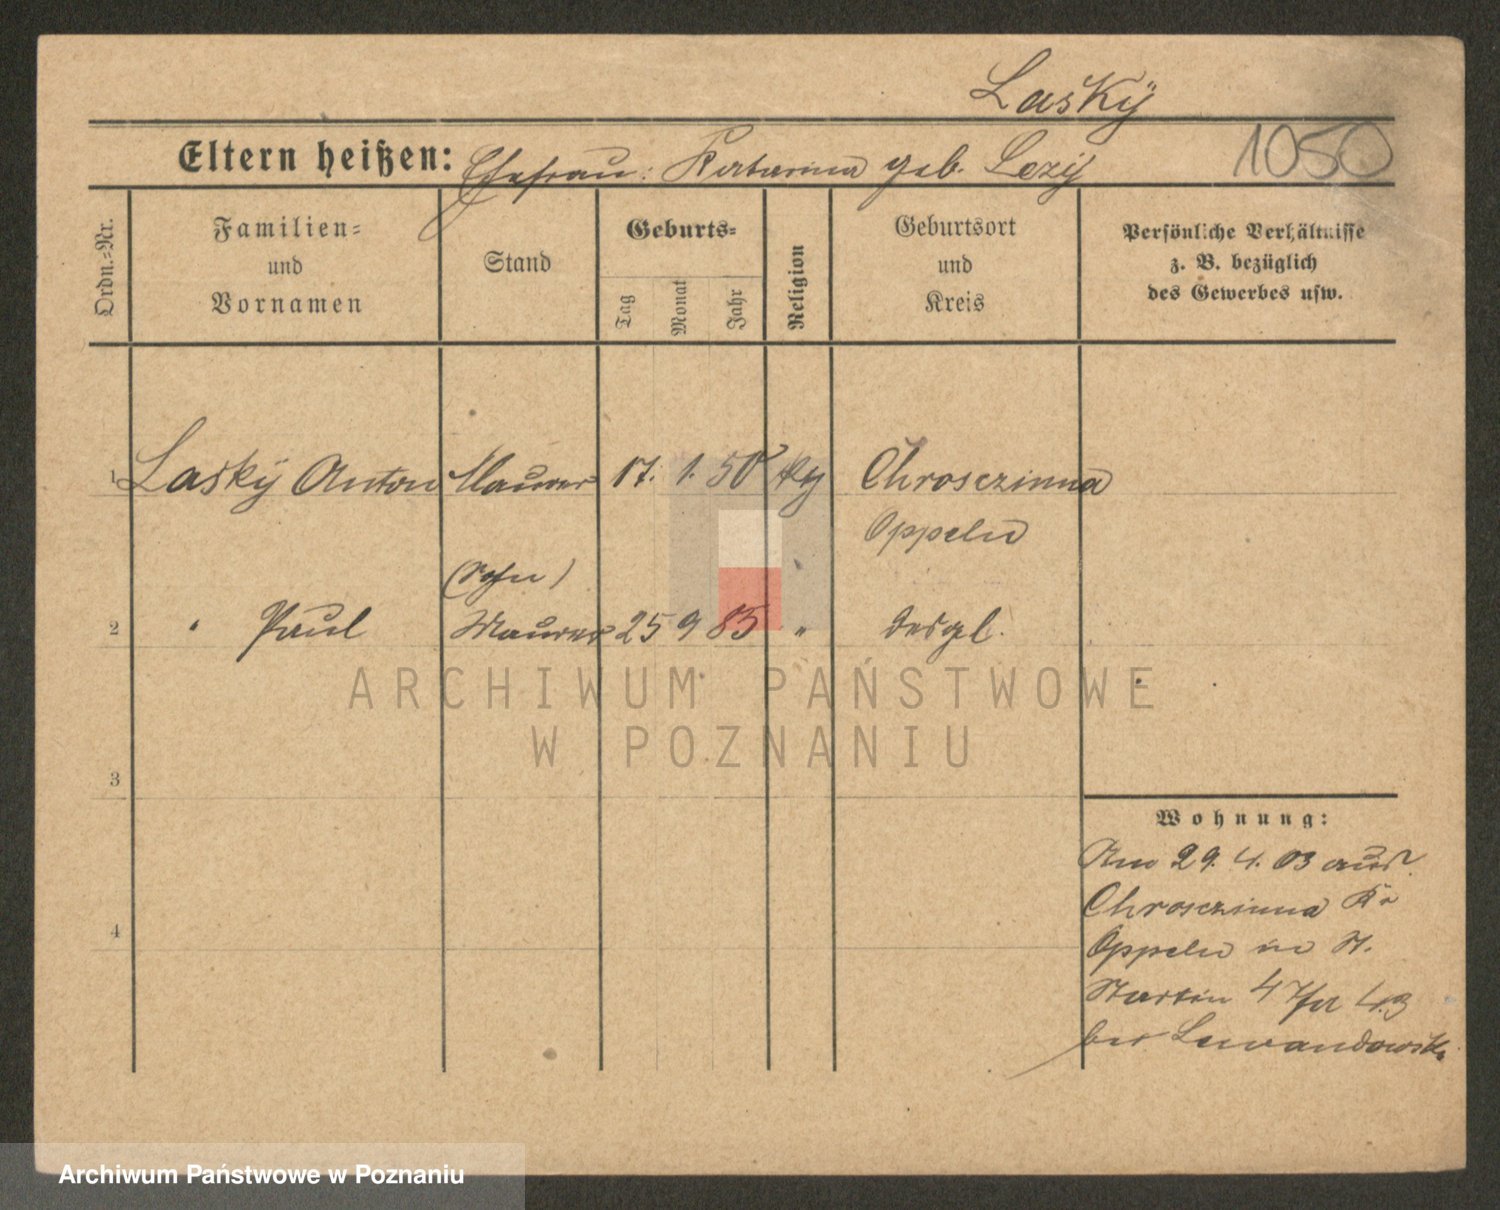 Lasky
1050
Eltern heißen: Ehefrau: Katarina geb. Lezy
Ordn.-Nr.
Familien- und Vornamen
Stand
Geburts-
Tag
Monat
Jahr
Religion
Geburtsort und Kreis
Persönliche Verhältnisse
z. B. bezüglich
des Gewerbes usw.
1 Lasky Anton Maurer 17. 1. 50 Chrosczinna
Oppeln
(Sohn)
2 " Paul Maurer 25 9 85 " desgl.
3
4
Wohnung:
Am 29. 4. 03 aus
Chrosczinna Kr
Oppeln in St.
Martin 4
bei Lewandowski
ARCHIWUM PAŃSTWOWE
W POZNANIU
Archiwum Państwowe w Poznaniu